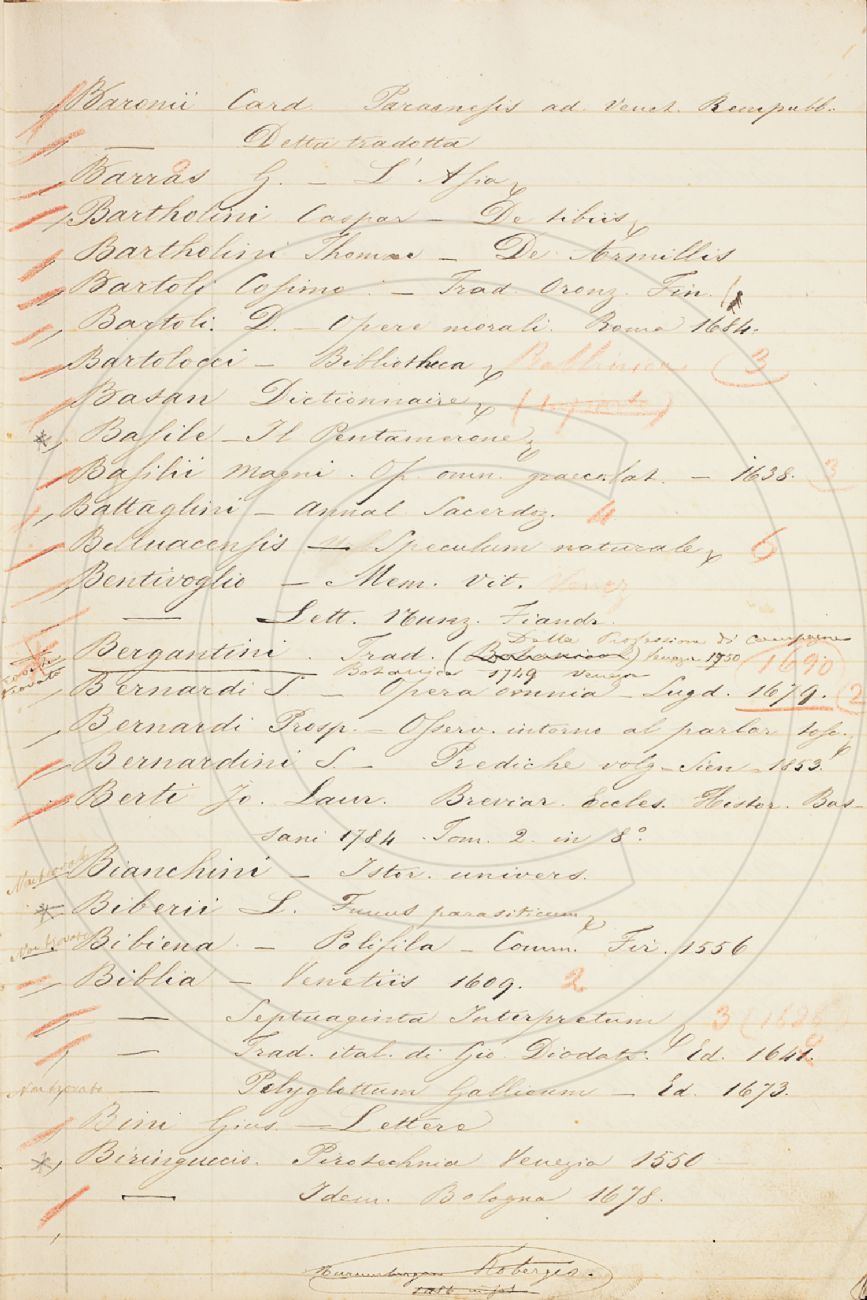 Baronii Card. Paraenesis ad. Venet. Rempubb.
— Detta tradotta
Barras G. – L'Asia
Bartholini Caspar – De tibiis
Bartholini Thomae – De Armillis
Bartoli Cosimo – Trad. Oronz. Fin.
Bartoli. D. – Opere morali. Roma 1684.
Bartolocci – Bibliotheca Rabbinica (3)
Basan Dictionnaire
* Basile – Il Pentamerone
Basilii Magni. Op. omn. graec. lat. – 1638. 3
Battaglini – Annal Sacerdoz. 4
Belluacensis — Speculum naturale 6
Bentivoglio – Mem. Vit. Venez
— Lett. Nunz. Fiandr.
Della Professione di Campagna
Bergantini Trad. (Botanicon) 1750 1690
trovato Botanica 1749 Venezia
Bernardi S. – Opera omnia – Lugd. 1679. (2
Bernardi Prosp. – Osserv. intorno al parlar tosc.
Bernardini S. – Prediche volg. – Sien. 1853.
Berti Jo. Laur. Breviar. Eccles. Histor. Bas–
sani 1784 Tom. 2. in 8°.
Non trovato Bianchini – Istor. univers.
* Biberii L. Funus parasiticum
Non trovato Bibiena – Polifila – Comm. Fir. 1556
Biblia – Venetiis 1609. 2
— Septuaginta Interpretum 3
— Trad. ital. di Gio. Diodati. Ed. 1641.
Non trovato — Polyglottum Gallicum – Ed. 1673.
Bini Gius. – Lettere
* Biringuccio. Pirotechnia Venezia 1550
— Idem. Bologna 1678.
Koberger.